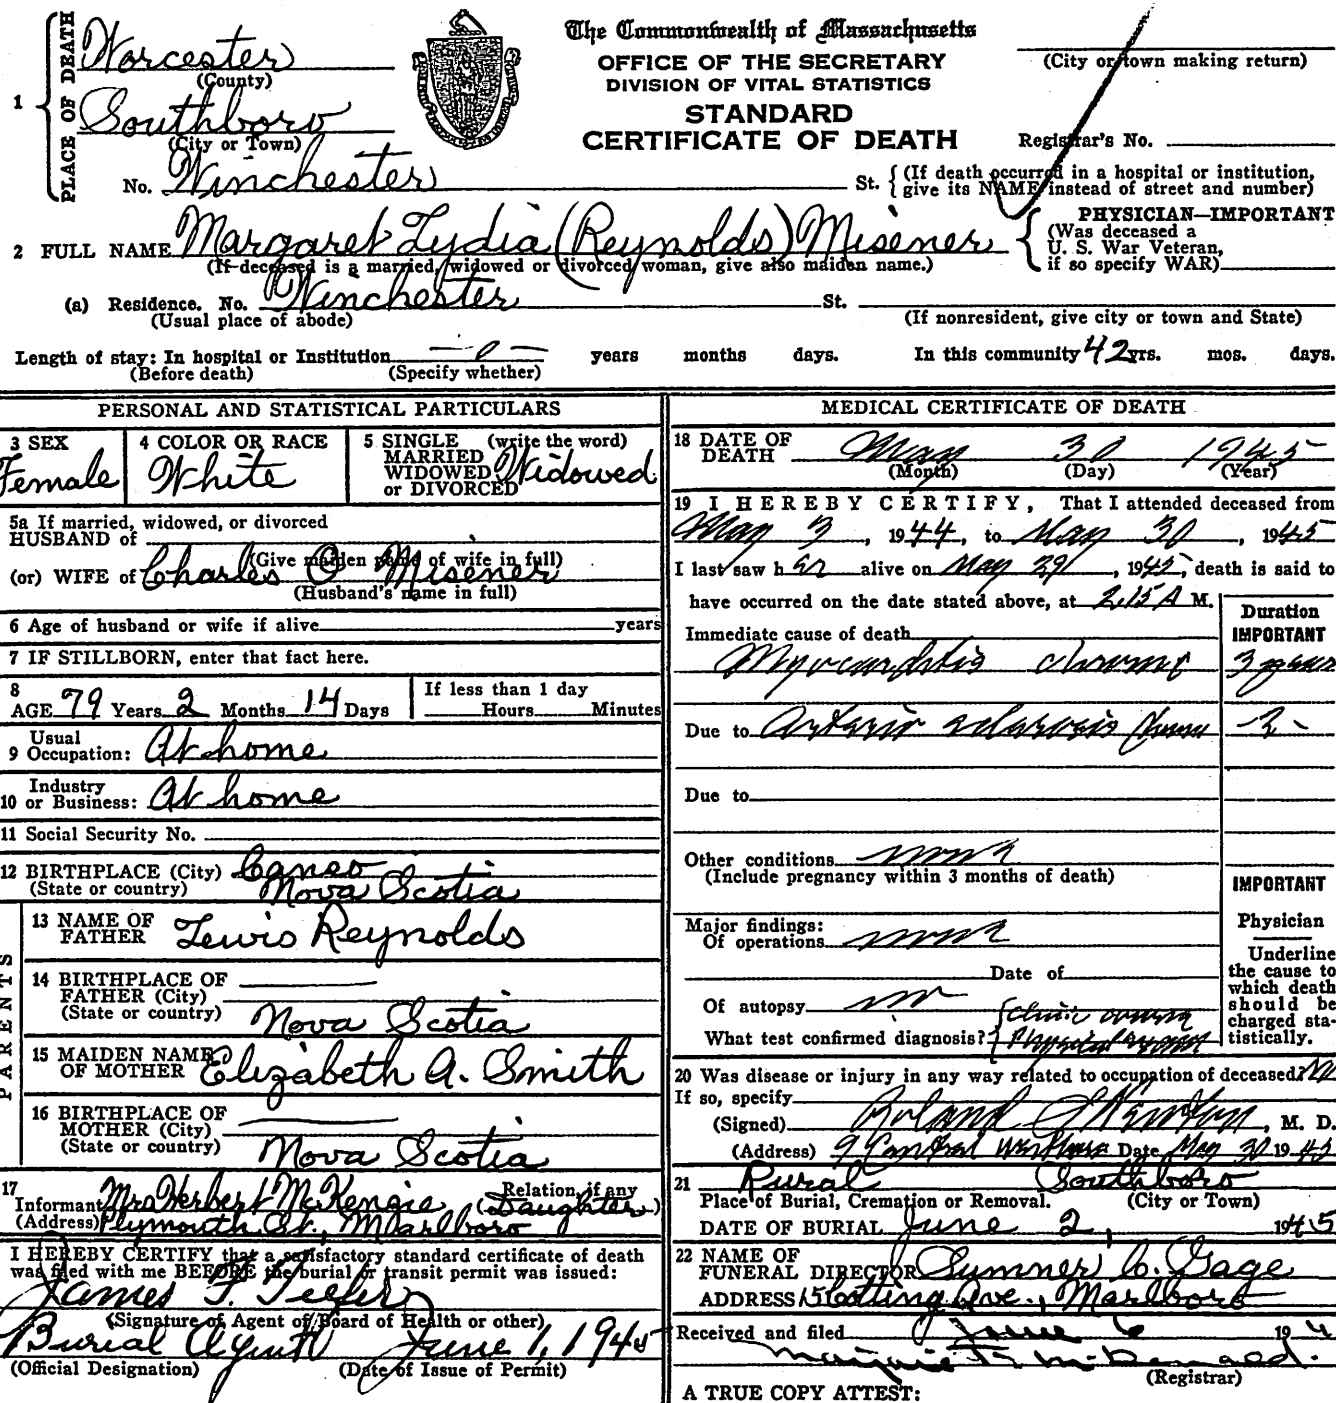 The Commonwealth of Massachusetts
OFFICE OF THE SECRETARY
DIVISION OF VITAL STATISTICS
STANDARD
CERTIFICATE OF DEATH
(City or town making return)
Registrar's No.
1 PLACE OF DEATH
Worcester
(County)
Southboro
(City or Town)
No. Winchester St. (If death occurred in a hospital or institution, give its NAME instead of street and number)
2 FULL NAME Margaret Lydia (Reynolds) Misener
(If deceased is a married, widowed or divorced woman, give also maiden name.)
PHYSICIAN—IMPORTANT
(Was deceased a
U. S. War Veteran,
if so specify WAR)
(a) Residence. No. Winchester St.
(Usual place of abode)
(If nonresident, give city or town and State)
Length of stay: In hospital or Institution —0— years months days. In this community 42 yrs. mos. days.
(Before death) (Specify whether)
PERSONAL AND STATISTICAL PARTICULARS
3 SEX
Female
4 COLOR OR RACE
White
5 SINGLE (write the word)
MARRIED
WIDOWED
or DIVORCED
Widowed
5a If married, widowed, or divorced
HUSBAND of
(Give maiden name of wife in full)
(or) WIFE of Charles O Misener
(Husband's name in full)
6 Age of husband or wife if alive years
7 IF STILLBORN, enter that fact here.
8 AGE 79 Years 2 Months 14 Days
If less than 1 day
Hours Minutes
9 Usual Occupation: At home
10 Industry or Business: At home
11 Social Security No.
12 BIRTHPLACE (City) Canso
(State or country) Nova Scotia
PARENTS
13 NAME OF FATHER Lewis Reynolds
14 BIRTHPLACE OF FATHER (City)
(State or country) Nova Scotia
15 MAIDEN NAME OF MOTHER Elizabeth A. Smith
16 BIRTHPLACE OF MOTHER (City)
(State or country) Nova Scotia
17 Informant Mrs Herbert McKenzie Relation, if any (Daughter)
(Address) Plymouth St., Marlboro
I HEREBY CERTIFY that a satisfactory standard certificate of death
was filed with me BEFORE the burial or transit permit was issued:
James F.
(Signature of Agent of Board of Health or other)
Burial Agent June 1, 1945
(Official Designation) (Date of Issue of Permit)
MEDICAL CERTIFICATE OF DEATH
18 DATE OF DEATH May 30 1945
(Month) (Day) (Year)
19 I HEREBY CERTIFY, That I attended deceased from
May 3, 1944, to May 30, 1945
I last saw her alive on May 29, 1945, death is said to
have occurred on the date stated above, at 2.15 A M.
Duration
IMPORTANT
Immediate cause of death
Myocarditis chronic 3 years
Due to Arterio sclerosis -2-
Due to
Other conditions none
(Include pregnancy within 3 months of death)
IMPORTANT
Major findings:
Of operations none
Date of
Of autopsy no
What test confirmed diagnosis? Physical
Physician
Underline
the cause to
which death
should be
charged sta-
tistically.
20 Was disease or injury in any way related to occupation of deceased? No
If so, specify
(Signed) Roland S Newton, M. D.
(Address) 9 Central Date May 30 1945
21 Rural Southboro
Place of Burial, Cremation or Removal. (City or Town)
DATE OF BURIAL June 2, 1945
22 NAME OF FUNERAL DIRECTOR Sumner C. Gage
ADDRESS 15 Cotting Ave., Marlboro
Received and filed June 6 194
Marjorie
(Registrar)
A TRUE COPY ATTEST: